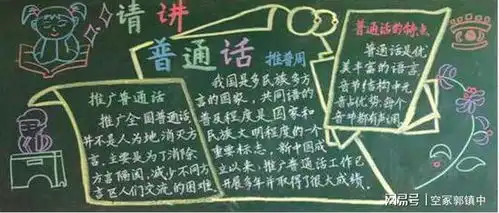 请讲
普通话
推普周
推广普通话
推广全国普通话
并不是人为地消灭方
言,主要是为了消除
方言隔阂,减少不同方
言区人们交流的困难
我国是多民族多方
言的国家,共同语的
普及程度是国家和
民族文明程度的一个
重要标志,新中国成
立以来,推广普通话工作已
开展多年并取得了很大成绩。
普通话的特点
普通话是优
美丰富的语言,
音节结构中元
音占优势,每个
音节都有声调
网易号 | 空冢郭镇中